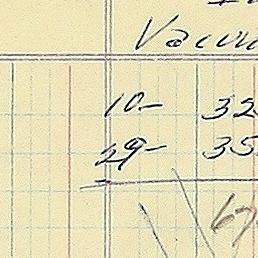 Vacuu
10- 32
29- 35
67